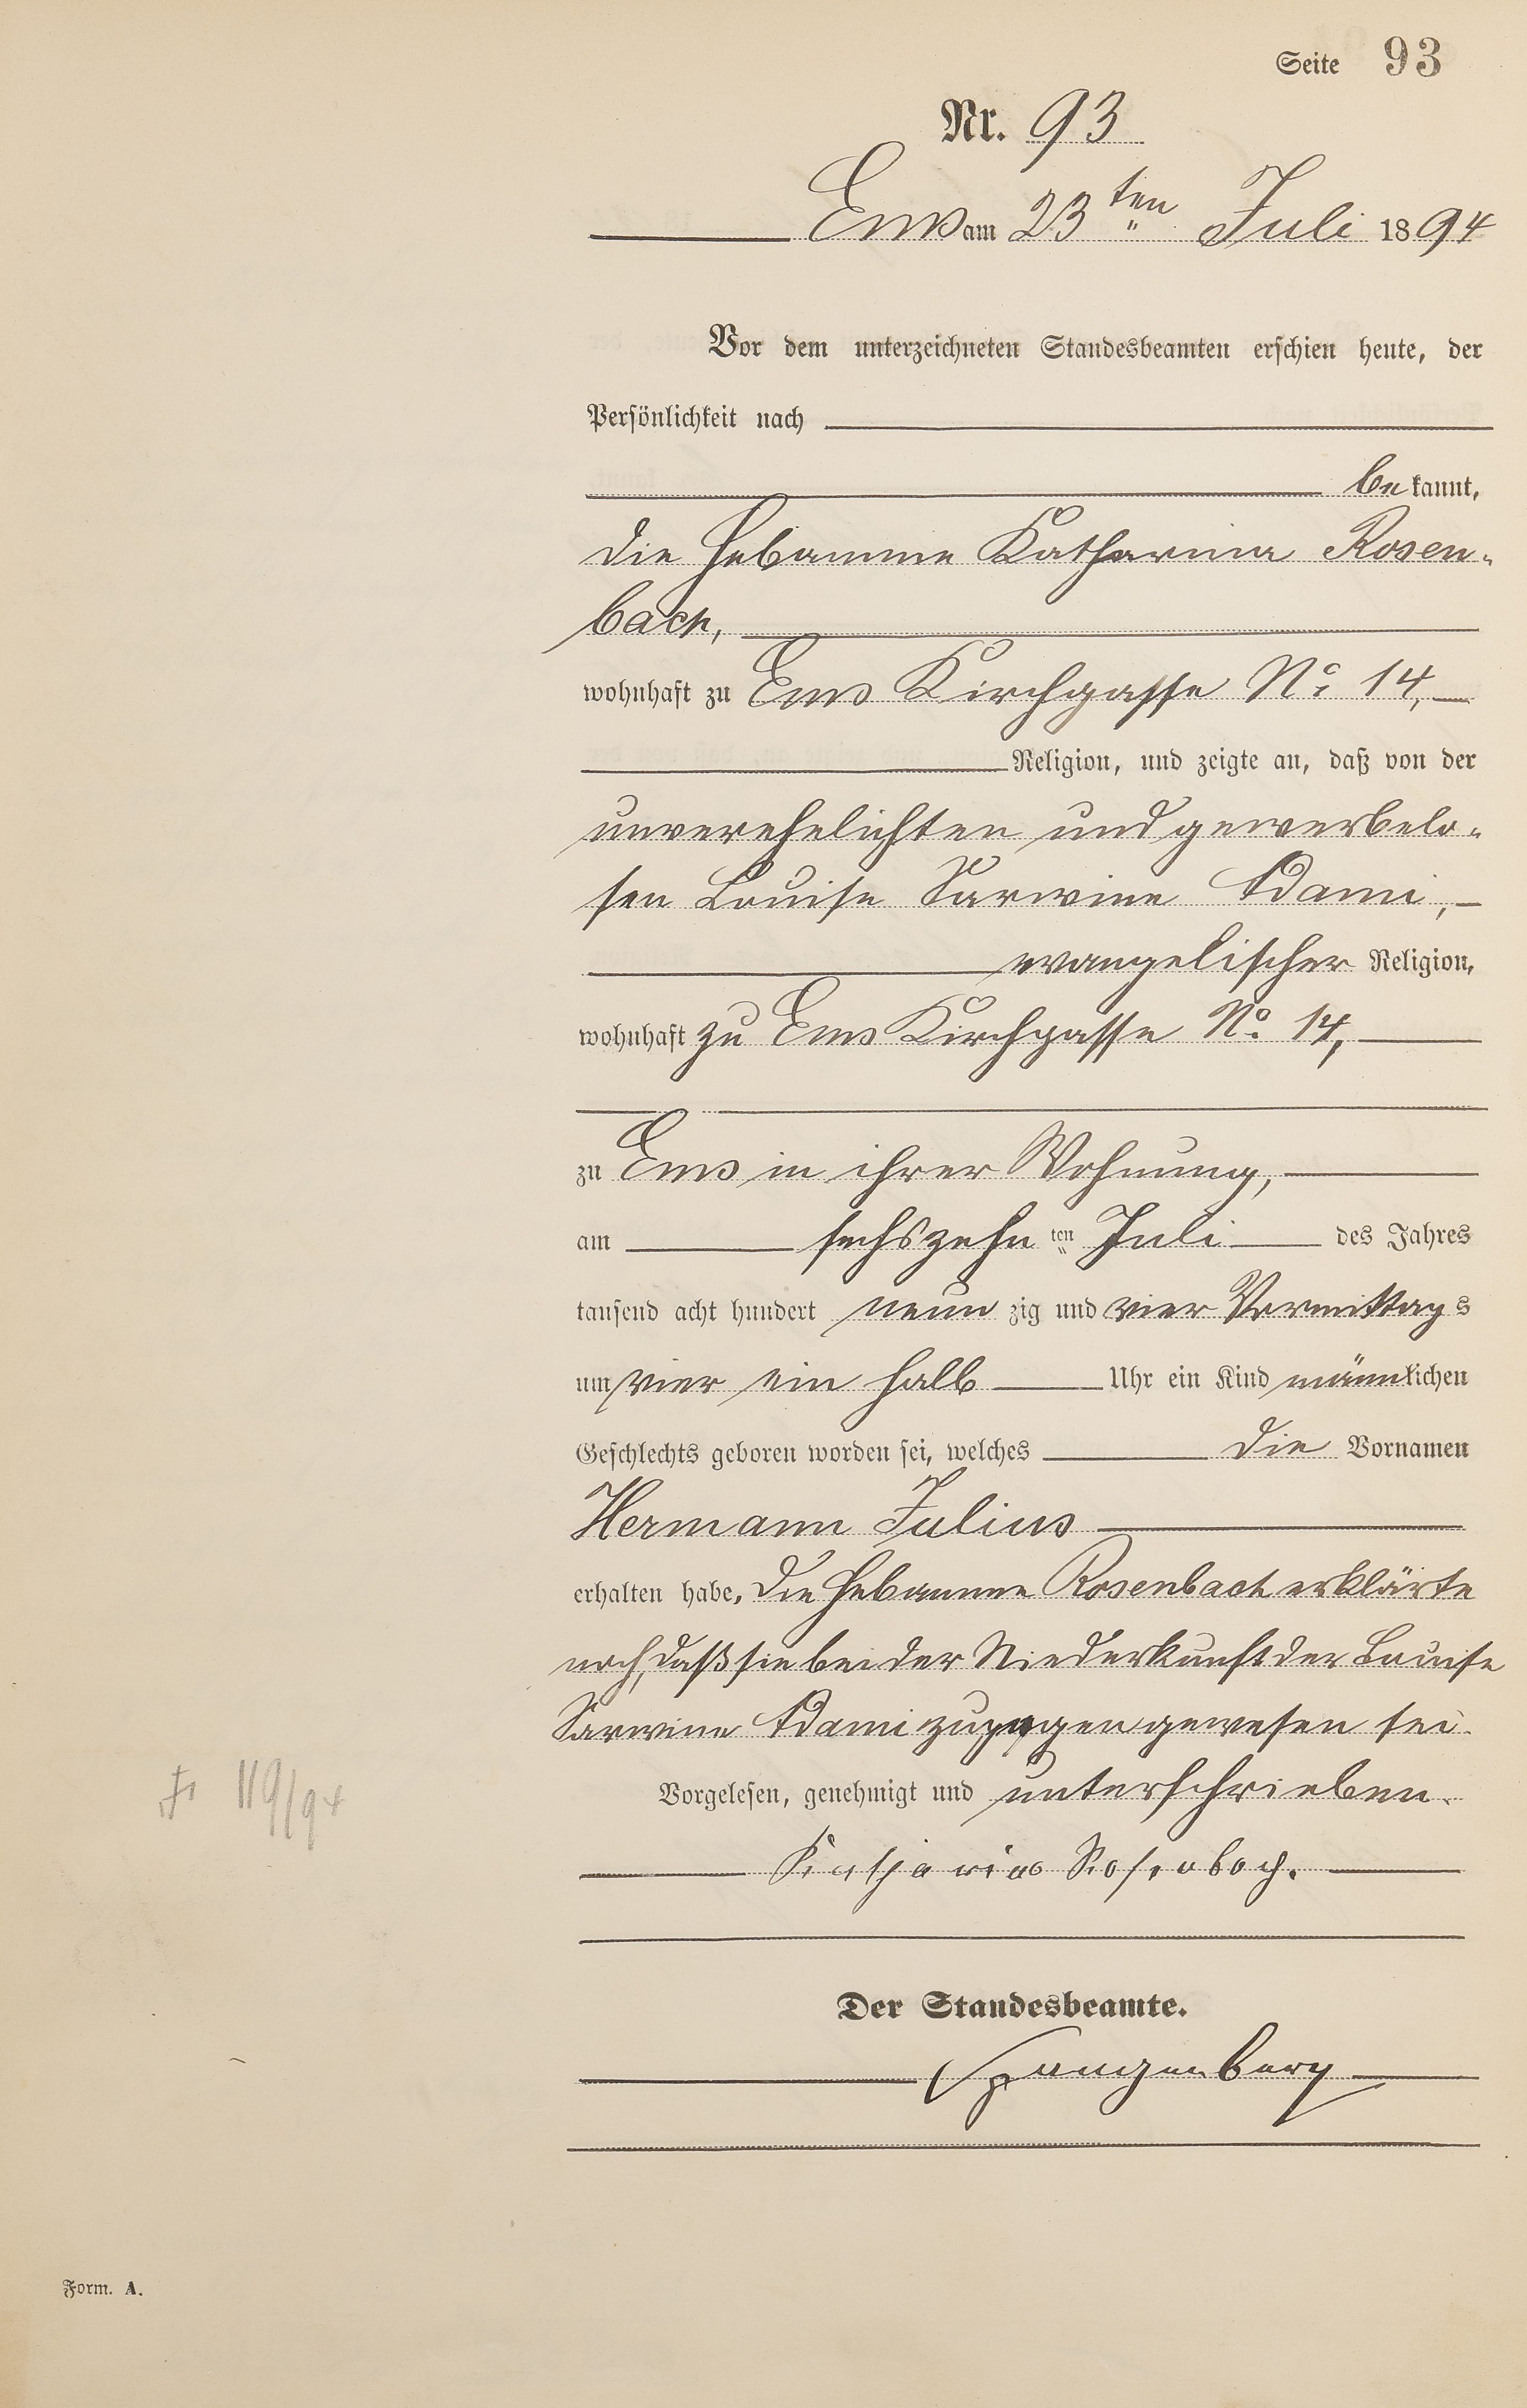 Seite 93
Nr. 93
Ems am 23ten Juli 1894
Vor dem unterzeichneten Standesbeamten erschien heute, der
Persönlichkeit nach
bekannt,
die Hebamme Katharina Rosen-
bach,
wohnhaft zu Ems Kirchgasse No 14,
Religion, und zeigte an, daß von der
unverehelichten und gewerbelo-
sen Louise Sarwine Adami,
evangelischer Religion,
wohnhaft zu Ems Kirchgasse No. 14,
zu Ems in ihrer Wohnung,
am sechszehnten Juli des Jahres
tausend acht hundert neunzig und vier Vormittags
um vier ein halb Uhr ein Kind männlichen
Geschlechts geboren worden sei, welches die Vornamen
Hermann Julius
erhalten habe. Die Hebamme Rosenbach erklärte
noch, daß sie bei der Niederkunft der Louise
Sarwine Adami zugegen gewesen sei.
Vorgelesen, genehmigt und unterschrieben.
Katharina Rosenbach.
Der Standesbeamte.
Spangenberg
119/94
Form. A.